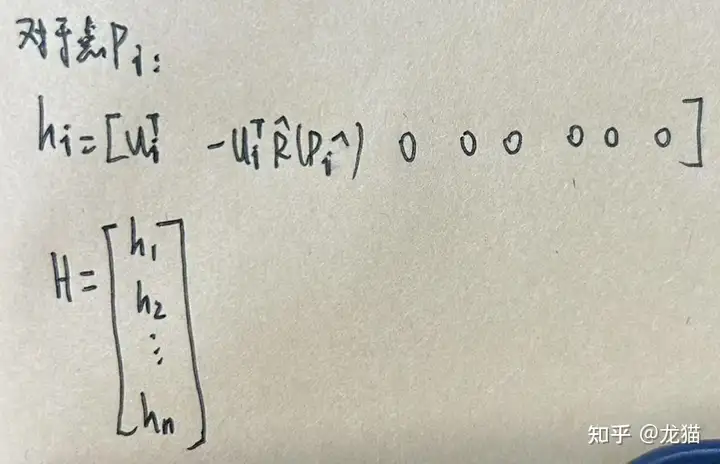 对于点Pi:
hi=[uiᵀ -uiᵀR̂(Pi^) 0 0 0 0 0 0]
H=[h1
h2
⋮
hn]
知乎 @龙猫